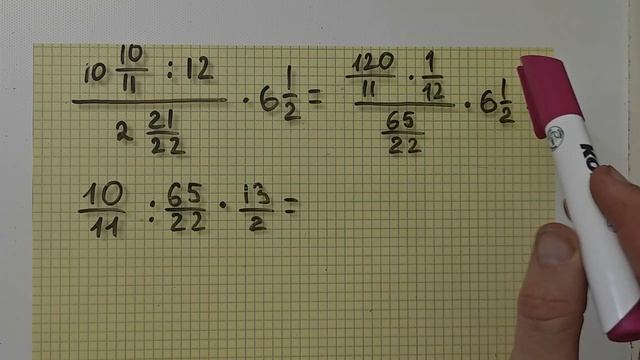 (10 10/11 : 12) / (2 21/22) · 6 1/2 = (120/11 · 1/12) / (65/22) · 6 1/2
10/11 : 65/22 · 13/2 =